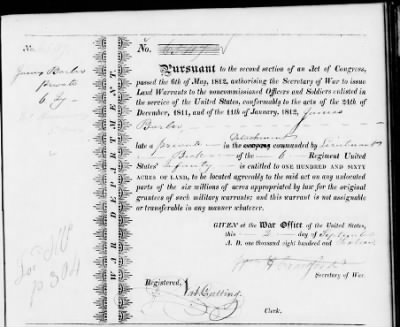 No.
No. 6547
James Barber
Private
6 Inf
PURSUANT to the second section of an Act of Congress,
passed the 6th of May, 1812, authorising the Secretary of War to issue
Land Warrants to the noncommissioned Officers and Soldiers enlisted in
the service of the United States, conformably to the acts of the 24th of
December, 1811, and of the 11th of January, 1812, James
Barber
Detachment
late a private in the company commanded by Lieutenant
of the 6 Regiment United
States' Infantry is entitled to ONE HUNDRED AND SIXTY
ACRES OF LAND, to be located agreeably to the said act on any unlocated
parts of the six millions of acres appropriated by law for the original
grantees of such military warrants; and this warrant is not assignable
or transferable in any manner whatever.
GIVEN at the War Office of the United States,
this day of September
A. D. one thousand eight hundred and
Wm H Crawford
Secretary of War.
Registered,
Clerk.
WAR DEPARTMENT.
p 304